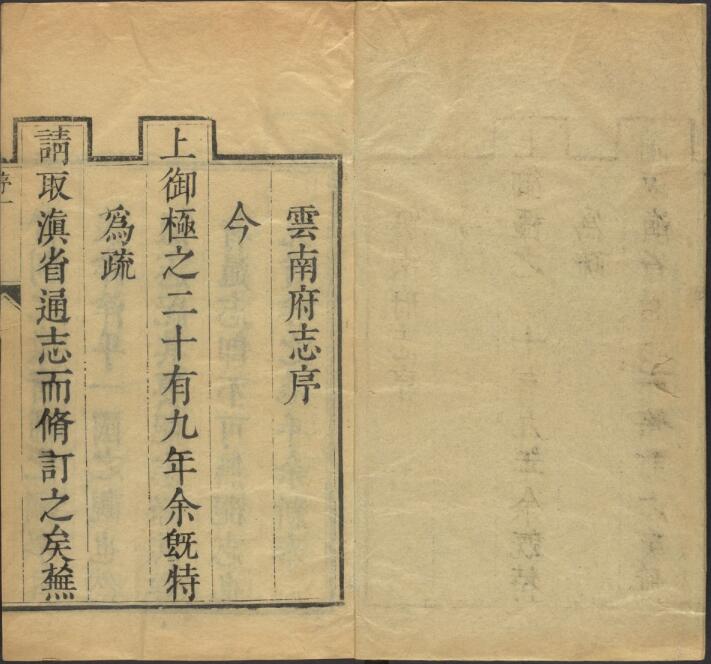 雲南府志序
今
上御極之二十有九年余既特
為疏
請取滇省通志而脩訂之矣蕪
序一